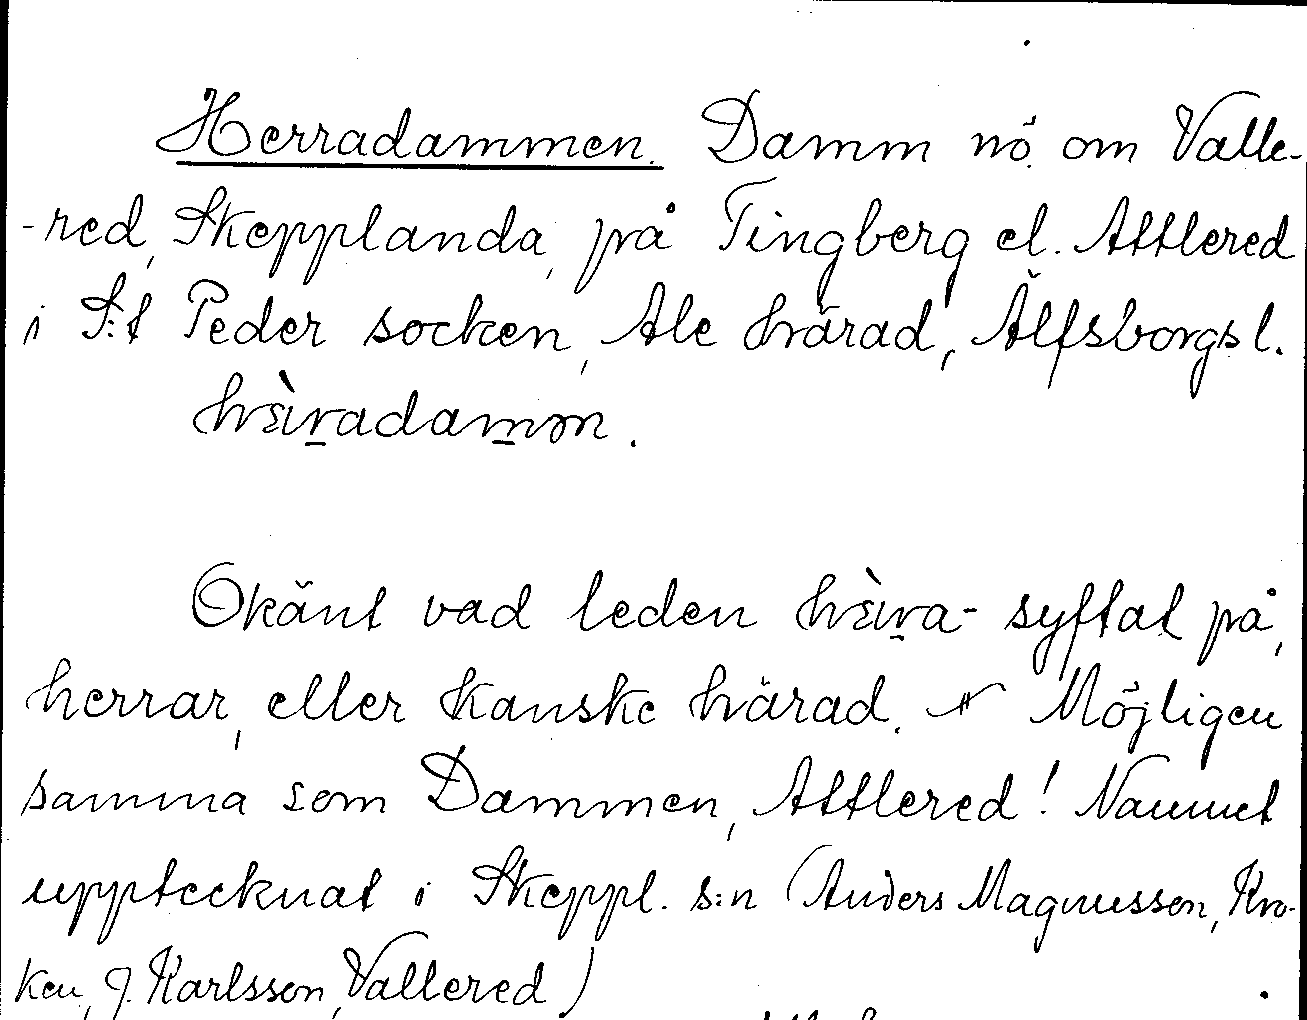 Herradammen. Damm nö. om Valle-
-red, Skepplanda, på Tingberg el. Attlered
i S:t Peder socken, Ale härad, Älfsborgs l.
hɛ̀ɪr̲adam̲ən.
Okänt vad leden hɛ̀ɪr̲a- syftat på,
herrar, eller kanske härad. Möjligen
samma som Dammen, Attlered! Namnet
upptecknat i Skeppl. s:n (Anders Magnusson, Kro-
ken, J. Karlsson, Vallered)